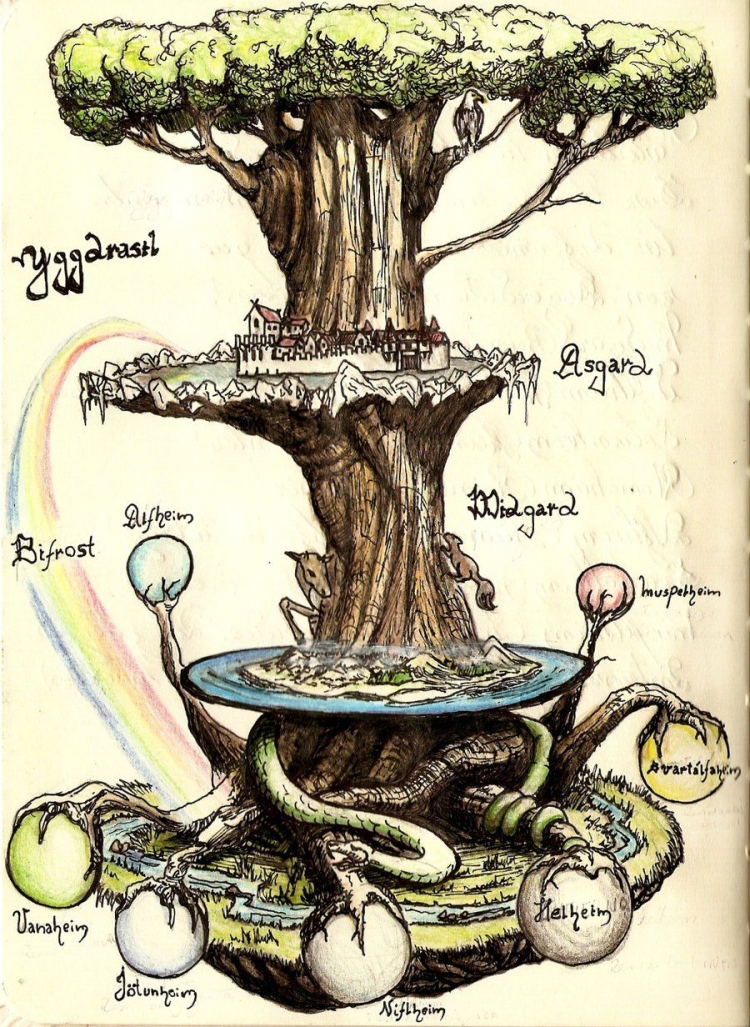 Yggdrasil
Asgard
Midgard
Alfheim
Bifrost
Muspelheim
Svartálfaheim
Helheim
Vanaheim
Jötunheim
Niflheim